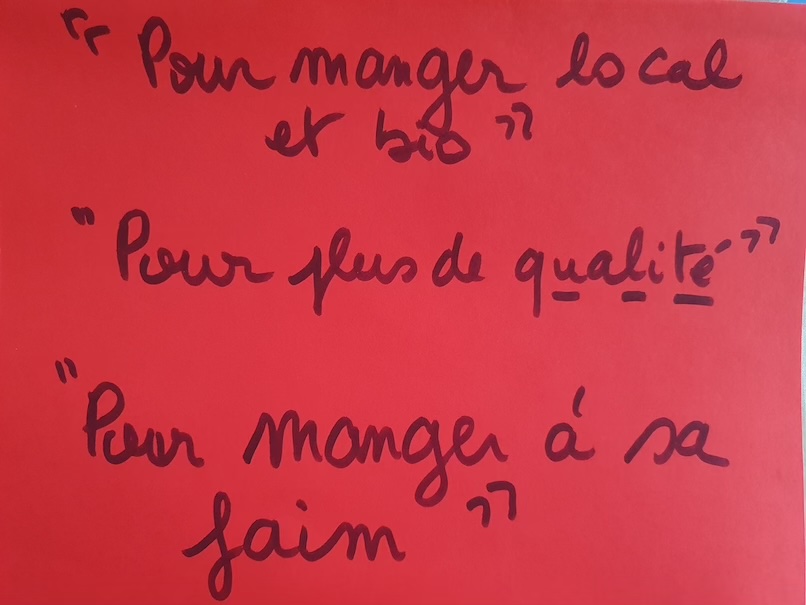 "Pour manger local
et bio"
"Pour plus de qualité"
"Pour manger à sa
faim"